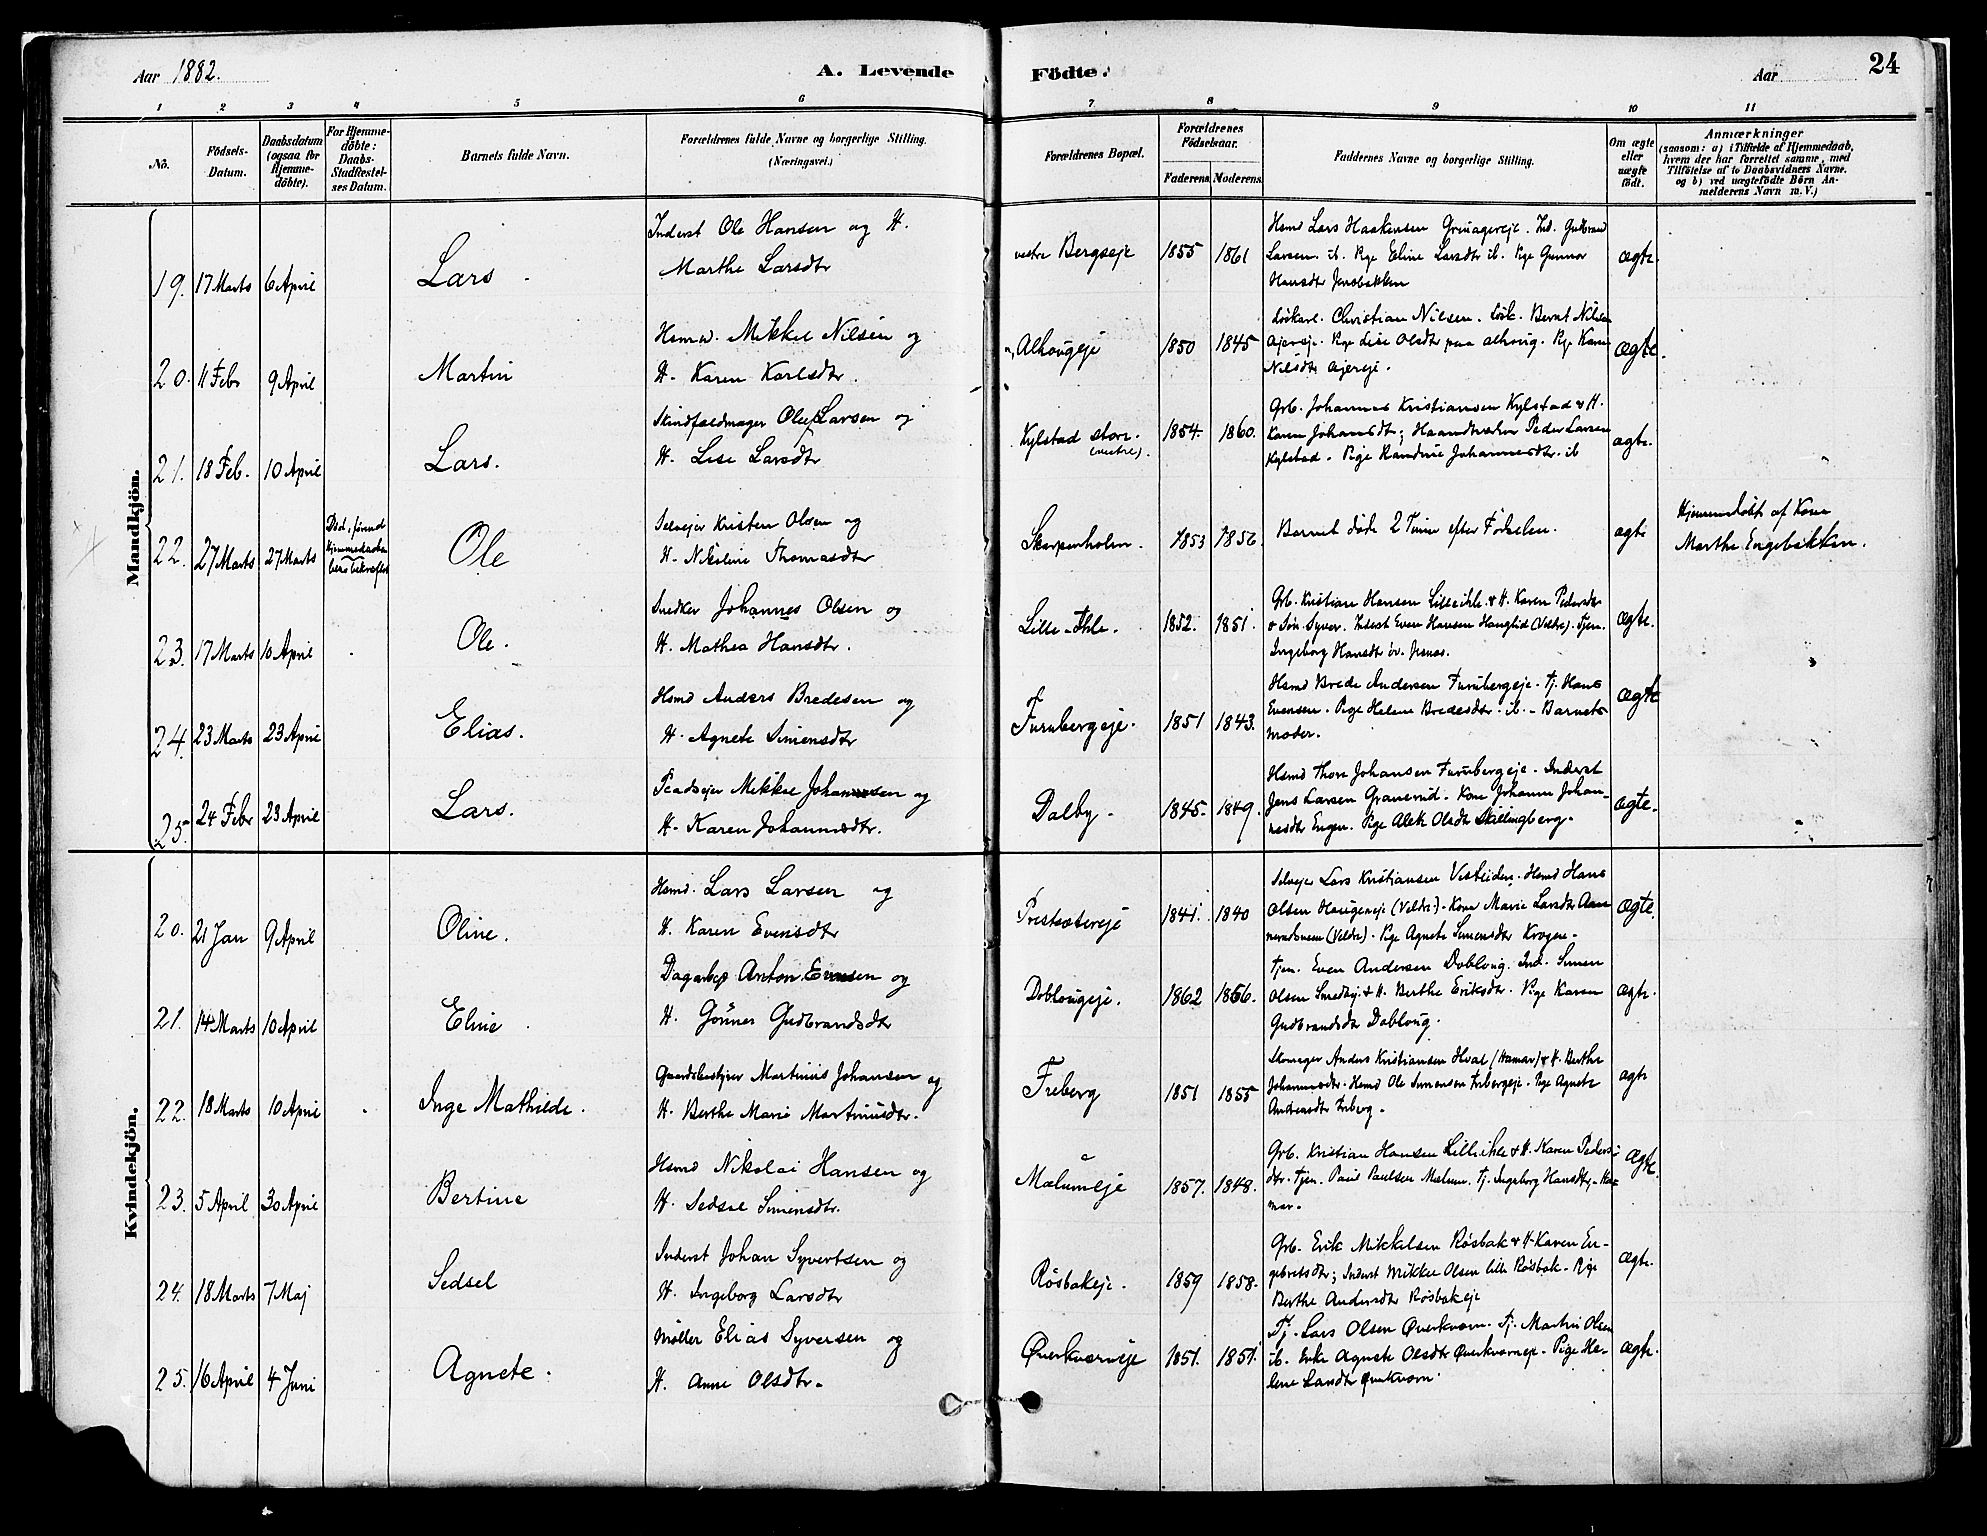 Aar 1882.
A. Levende Födte.
Aar
24
1 2 3 4 5 6 7 8 9 10 11
No.
Födsels-Datum.
Daabsdatum (ogsaa for Hjemme-döbte).
For Hjemme-döbte: Daabs-Stadfæstel-ses Datum.
Barnets fulde Navn.
Forældrenes fulde Navne og borgerlige Stilling. (Næringsvei.)
Forældrenes Bopæl.
Forældrenes Födselsaar.
Faderens. Moderens.
Faddernes Navne og borgerlige Stilling.
Om ægte eller uægte födt.
Anmærkninger
(saasom: a) i Tilfælde af Hjemmedaab,
hvem der har forrettet samme, med
Tilföielse af to Daabsvidners Navne.
og b) ved uægtefödte Börn An-
melderens Navn m. V.)
Mandkjön.
19. 17 Marts 6 April Lars Inderst Ole Hansen og H.
Marthe Larsdtr
vestre Bergseje 1855 1861
Hsmd Lars Haakensen . Ind. Gudbrand
Larsen ib. Pige Eline Larsdtr ib. Pige Gunnor
Hansdtr Jensbakken
ægte
20. 11 Febr 9 April Martin Hsmd. Mikkel Nilsen og
H. Karen Karlsdtr.
Alhougeje 1850 1845
Løskarl. Christian Nilsen. Løsk. Bernt Nilsen
Ajerseje. Pige Lise Olsdtr paa Alhoug. Pige Karen
Nilsdtr Ajereje.
ægte.
21. 18 Feb. 10 April Lars. Skindfældmager Oluf Larsen og
H. Lise Larsdtr
Kylstad store (vestre). 1854. 1860.
Grb. Johannes Kristiansen Kylstad & H.
Karen Johansdtr; Haandværker Peder Larsen
Kylstad. Pige Randine Johannesdtr. ib
ægte.
22. 27 Marts 27 Marts Ole Selvejer Kristen Olsen og
H. Nikoline Thomasdtr
Skarpenholm. 1853 1856.
Barnet døde 2 Timer efter Fødselen.
ægte
Hjemmedøbt af Kone
Marthe Engebakken.
23. 17 Marts 10 April Ole. Snedker Johannes Olsen og
H. Mathea Hansdtr.
Lille-Ihle. 1852. 1851.
Grb. Kristian Hansen Lilleihle & H. Karen Pedersdtr
o Søn Syver. Inderst Even Hansen Hauglid (Veldre). Tjen.
Ingeborg Hansdtr .
ægte.
24. 23 Marts 23 April Elias. Hsmd Anders Bredesen og
H. Agnete Simensdtr
Furubergeje. 1851 1843.
Hsmd Brede Andersen Furubergeje. Tj. Hans
Evensen. Pige Helene Bredesdtr. ib. - Barnets
moder.
ægte
25. 24 Febr 23 April Lars. Pladsejer Mikkel Johannesen og
H. Karen Johannesdtr.
Dalby. 1845. 1849.
Hsmd Thore Johansen Furubergeje. Inderst
Jens Larsen Granerud. Kone Johanne Johan-
nesdtr Engen. Pige Alet Olsdtr Skillingberg.
ægte.
Kvindekjön.
20. 21 Jan 9 April Oline. Hsmd. Lars Larsen og
H. Karen Evensdtr
Prestsætereje 1841. 1840
Selvejer Lars Kristiansen . Hsmd Hans
Olsen Haugeneje (Veldre). Kone Marie Larsdtr Aan-
(Veldre). Pige Agnete Simensdtr Krogen.
ægte.
21. 14 Marts 10 April Eline Dagarbejd Anton Evensen og
H. Gönner Gudbrandsdtr
Doblougeje. 1862 1856.
Tjen. Even Andersen Dobloug. Ind. Simen
Olsen Smedbyj & H. Berthe Eriksdtr. Pige Karen
Gudbrandsdtr Dobloug.
ægte.
22. 18 Marts 10 April Inge Mathilde. Gaardsbestyrer Martinus Johansen og
H. Berthe Marie Martinusdtr.
Freberg 1851 1855
Skomager Anders Kristiansen Hval (Hamar) & H. Berthe
Johannesdtr. Hsmd Ole Simensen Frebergeje. Pige Agnete
Andreasdtr Freberg.
ægte
23. 5 April 30 April Bertine Hsmd Nikolai Hansen og
H. Sedsel Simensdtr.
Mælumeje 1857. 1848.
Grb. Kristian Hansen Lilleihle & H. Karen Peders-
dtr. Tjen. Paul Paulsen Mælum. Tj. Ingeborg Hansdtr. Ha-
mar.
ægte.
24. 18 Marts 7 Maj Sedsel Inderst Johan Syvertsen og
H. Ingeborg Larsdtr
Røsbakeje. 1859 1858.
Grb. Erik Mikkelsen Røsbak & H. Karen En-
gebretsdtr; Inderst Mikkel Olsen lille Røsbak. Pige
Berthe Andersdtr Røsbakeje
ægte.
25. 16 April 4 Juni Agnete. Møller Elias Syversen og
H. Anne Olsdtr.
Øverkværneje 1851. 1851.
Tj. Lars Olsen Øverkværn. Tj. Martin Olsen
ib. Enke Agnete Olsdtr Øverkværneje. Pige He-
lene Larsdtr Øverkværn.
ægte.